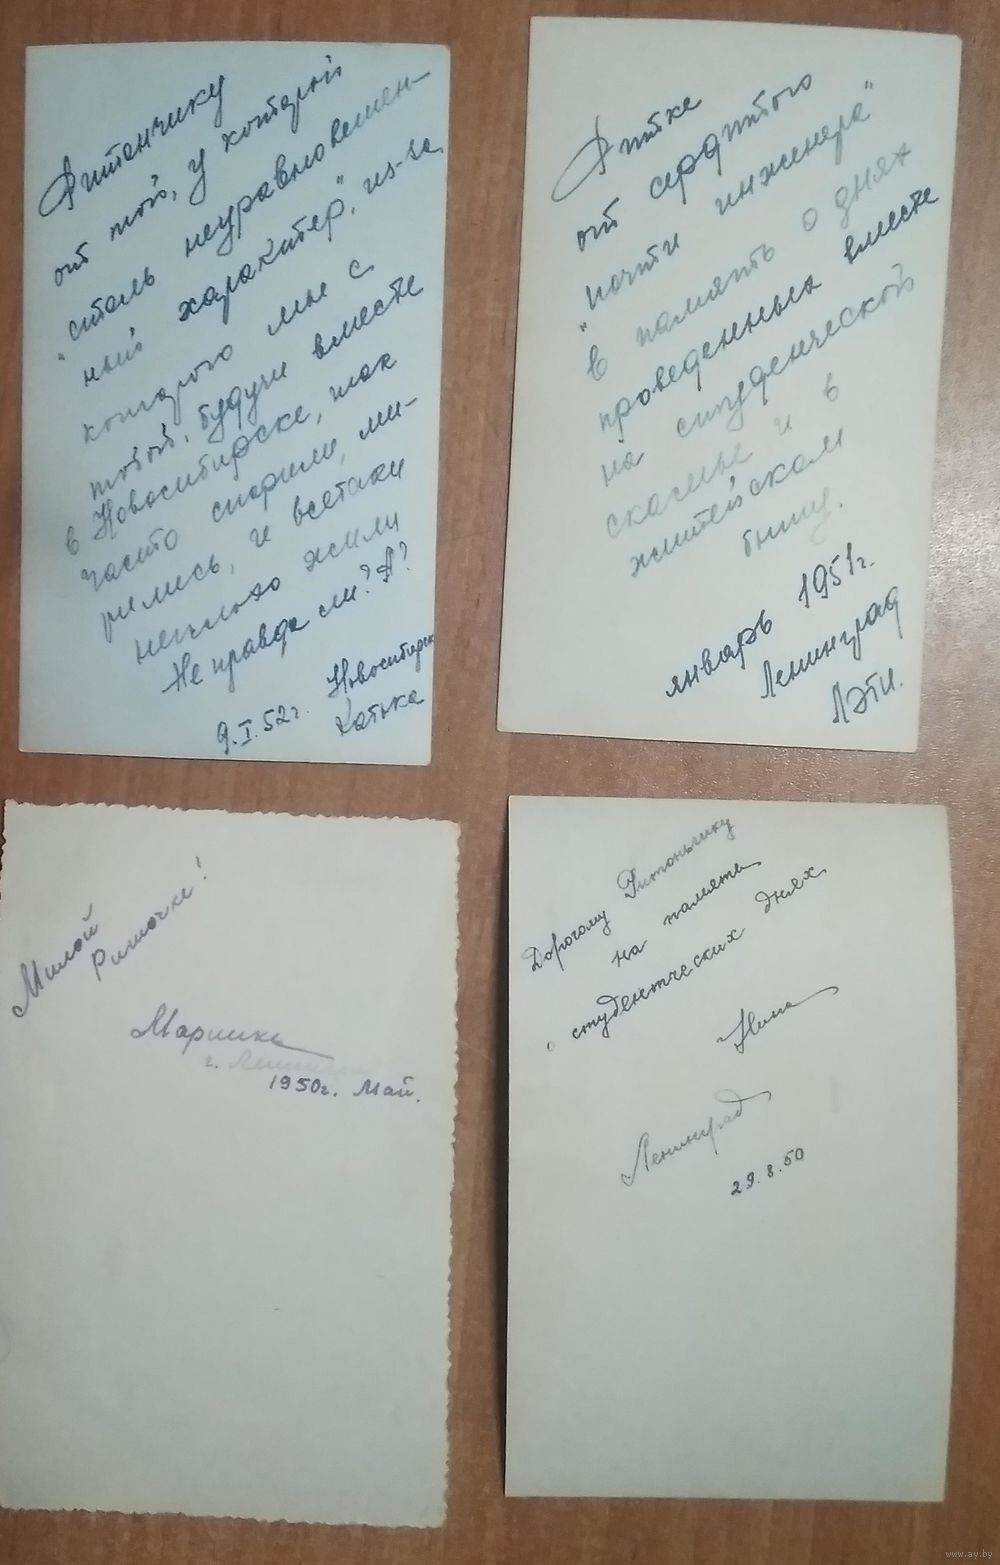 Ритончику
от той, у которой
"столь неуравновешен-
ный характер", из-за
которого мы с
тобой, будучи вместе
в Новосибирске, так
часто спорили, ми-
рились, и всетаки
неплохо жили
Не правда ли? А?
9.I.52г. Новосибирск
Катька
Ритке
от сердитого
"почти инженера"
в память о днях
проведенных вместе
на студенческой
скамье и в
житейском
быту.
январь 1951г.
Ленинград
ЛЭТИ.
Милой
Риточке!
Маришка
г. Ленинград
1950г. Май.
Дорогому Ритончику
на память
о студентческих днях
Нина
Ленинград
29.8.50
www.ay.by